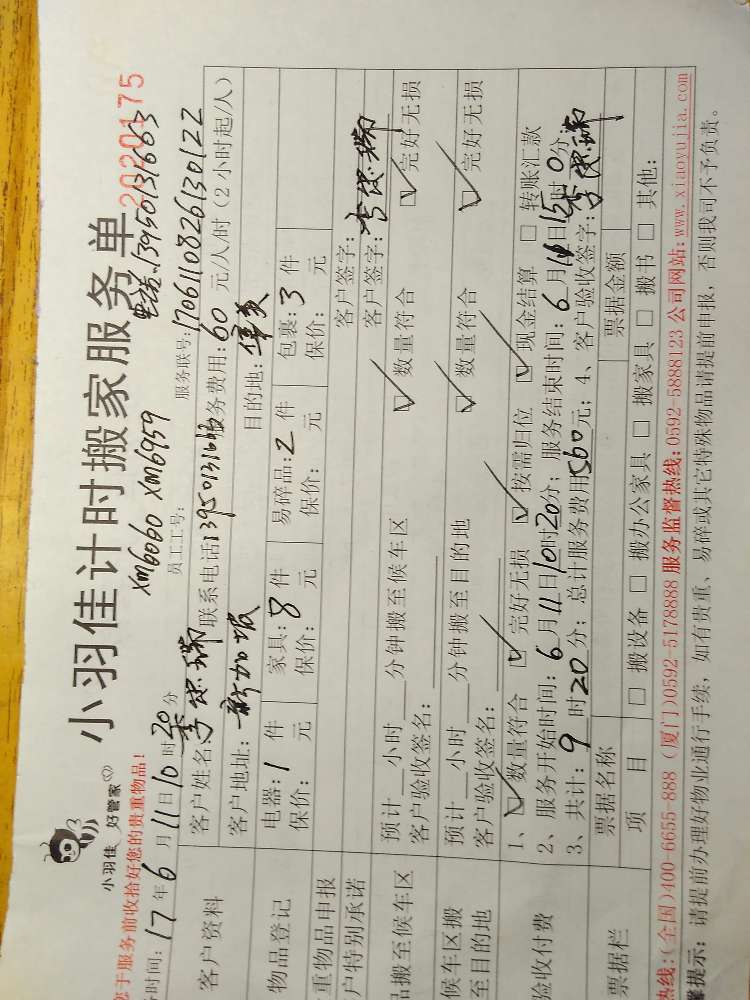 小羽佳计时搬家服务单
2020175
小羽佳 好管家
xm6060 xm6959
13950131663
您于服务前收拾好您的贵重物品!
员工工号:
服务联号:1706110826130122
务时间:17年6月11日10时20分
客户资料
客户姓名: 联系电话13950131663 服务费用:60元/人/时(2小时起/人)
客户地址:新加坡 目的地:
物品登记
电器:1件 家具:8件 易碎品:2件 包裹:3件
保价: 元 保价: 元 保价: 元 保价: 元
重物品申报 客户签字:
户特别承诺 客户签字:
品搬至候车区
预计___小时___分钟搬至候车区 ☑数量符合 ☑完好无损
客户验收签名:
候车区搬至目的地
预计___小时___分钟搬至目的地 ☑数量符合 ☑完好无损
客户验收签名:
验收付费
1、☑数量符合 ☑完好无损 ☑按需归位 ☑现金结算 □转账汇款
2、服务开始时间:6月11日10时20分; 服务结束时间:6月 日15时0分;
3、共计:9时20分; 总计服务费用560元; 4、客户验收签字:
票据栏
票据名称 票据金额
项 目 □搬设备 □搬办公家具 □搬家具 □搬书 □其他:
热线:(全国)400-6655-888 (厦门)0592-5178888 服务监督热线:0592-5888123 公司网站:www.xiaoyujia.com
馨提示: 请提前办理好物业通行手续,如有贵重、易碎或其它特殊物品请提前申报,否则我司不予负责。